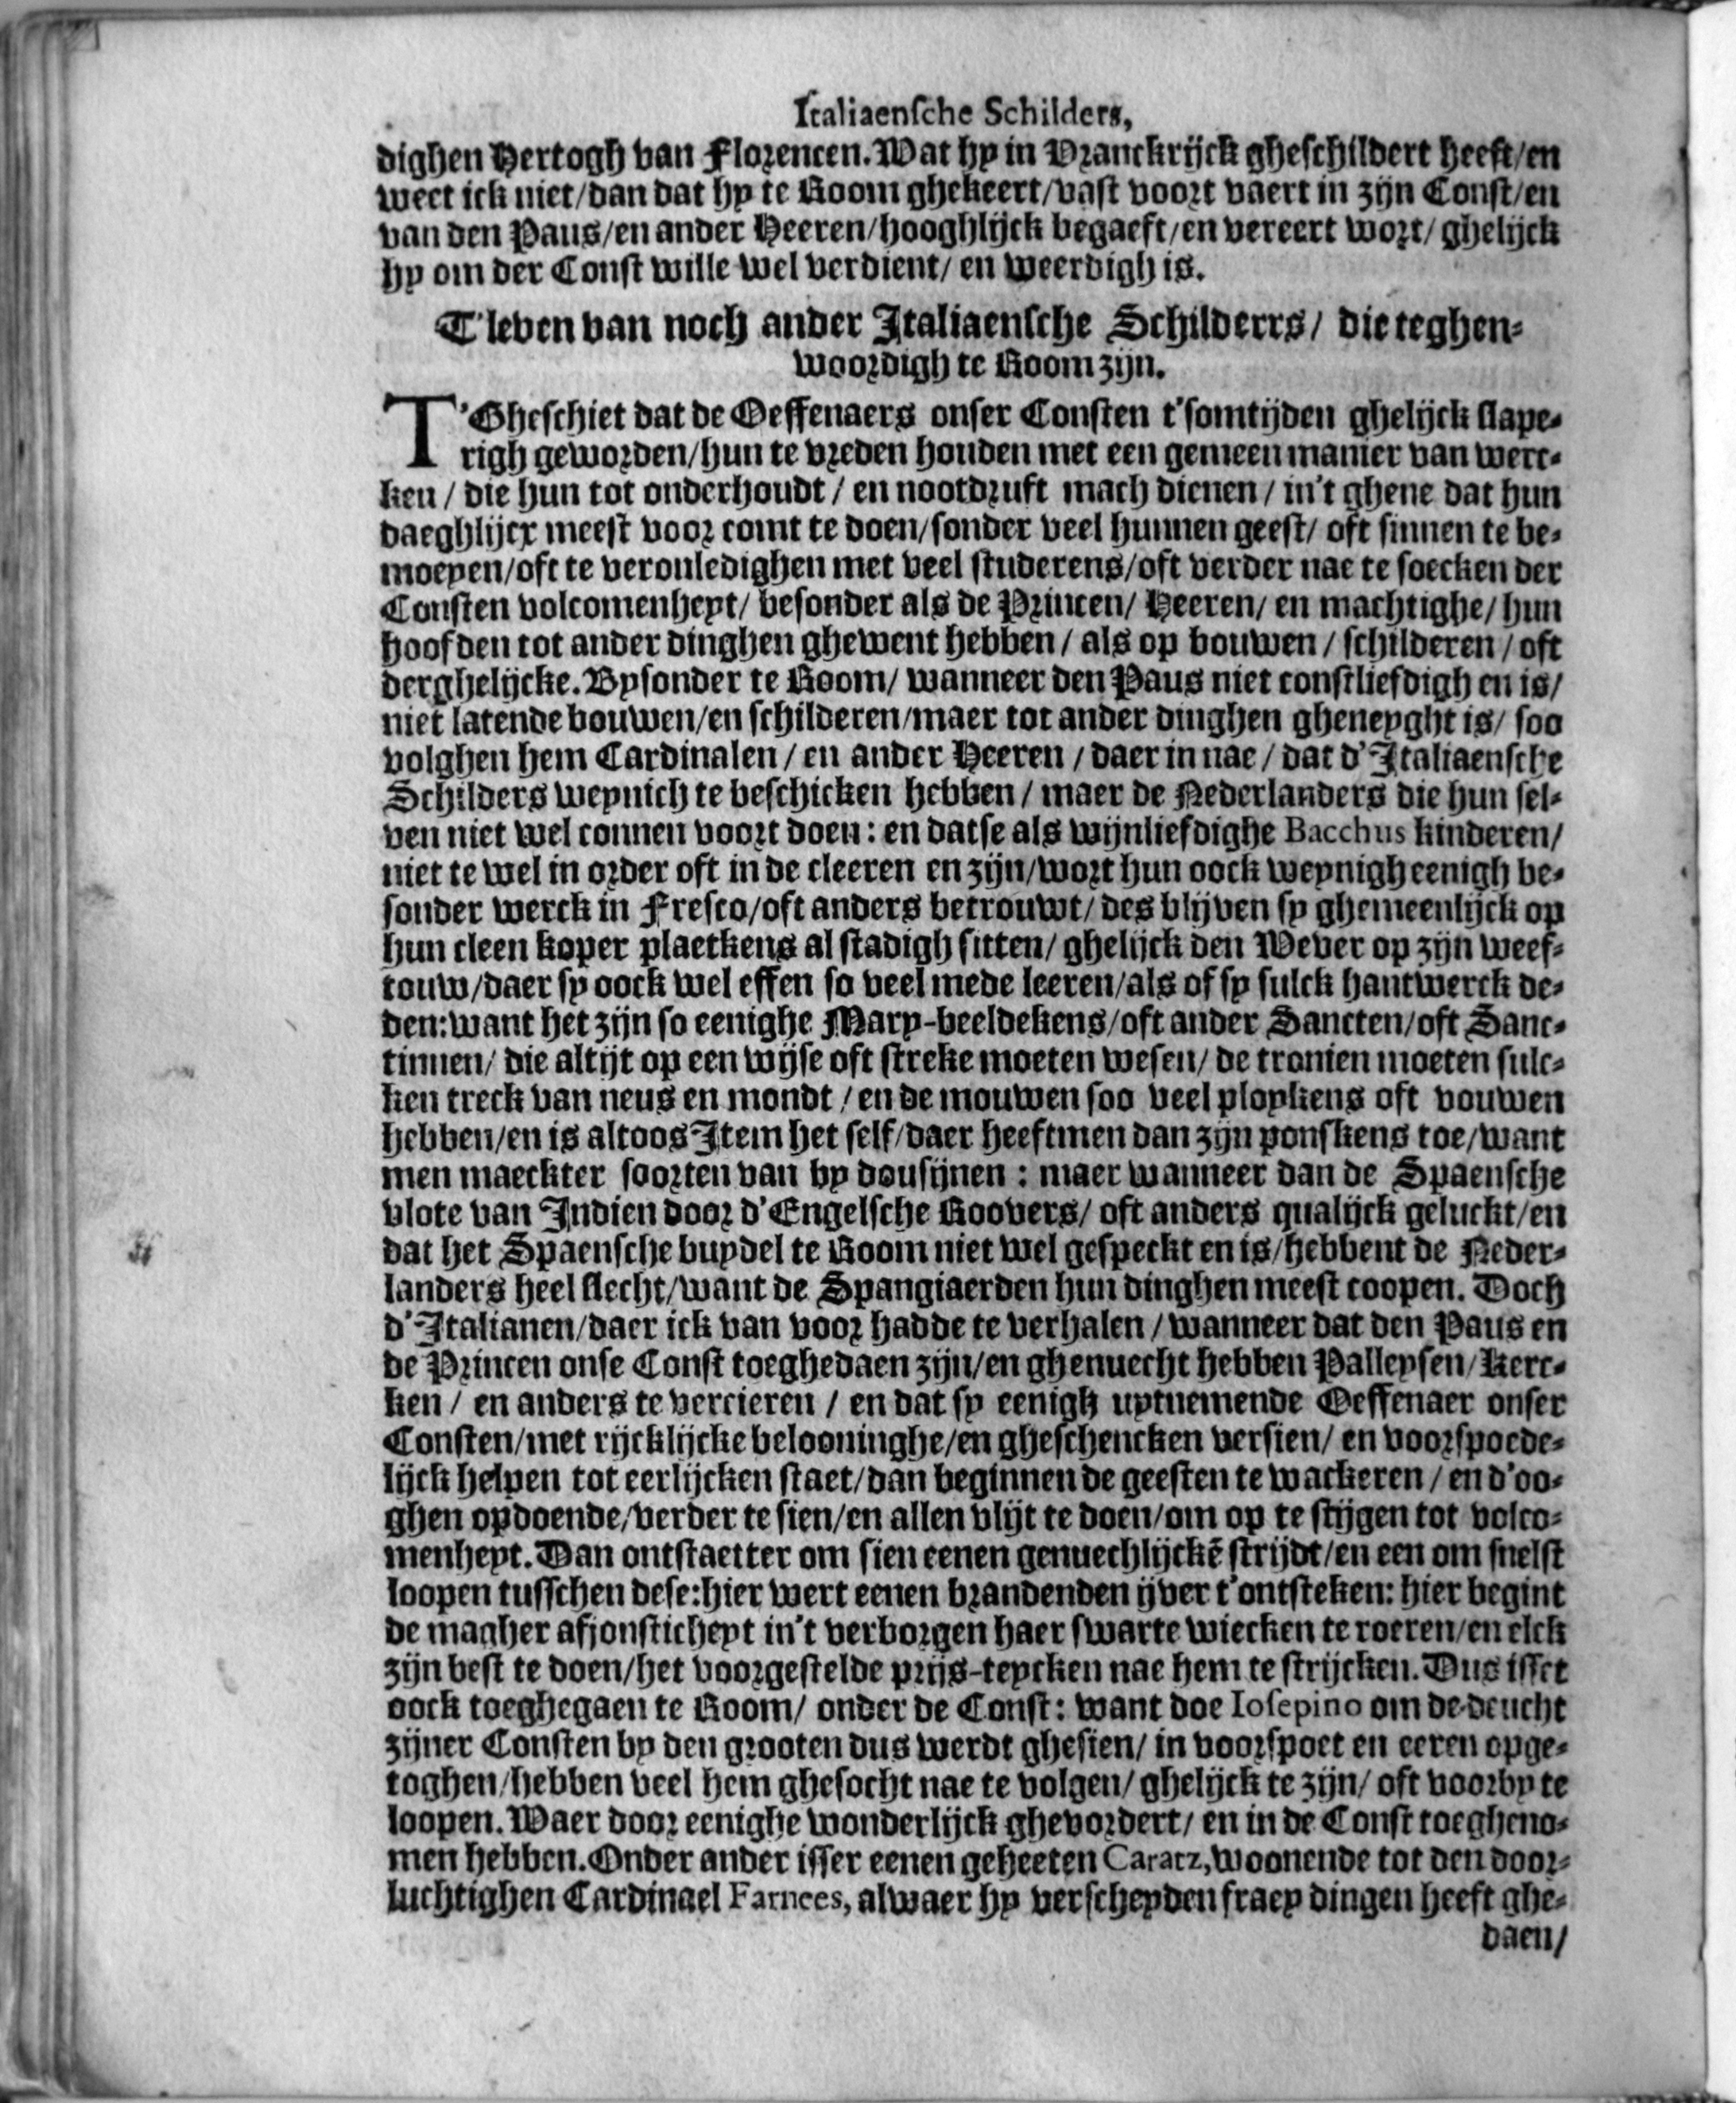 Italiaensche Schilders,
dighen Hertogh van Florencen. Wat hy in Vranckrijck gheschildert heeft/en
weet ick niet/dan dat hy te Room ghekeert/vast voort vaert in zijn Const/en
van den Paus/en ander Heeren/hooghlijck begaeft/en vereert wort/ghelijck
hy om der Const wille wel verdient/en weerdigh is.
T'leven van noch ander Italiaensche Schilderrs/ die teghen-
woordigh te Room zijn.
T'Gheschiet dat de Oeffenaers onser Consten t'somtijden ghelijck slape-
righ geworden/hun te vreden houden met een gemeen manier van werc-
ken/ die hun tot onderhoudt/ en nootdruft mach dienen/ in't ghene dat hun
daeghlijcx meest voor comt te doen/sonder veel hunnen geest/ oft sinnen te be-
moeyen/oft te verouledighen met veel studerens/oft verder nae te soecken der
Consten volcomenheyt/ besonder als de Princen/ Heeren/ en machtighe/ hun
hoofden tot ander dinghen ghewent hebben/ als op bouwen/ schilderen/ oft
derghelijcke. Bysonder te Room/ wanneer den Paus niet constliefdigh en is/
niet latende bouwen/en schilderen/maer tot ander dinghen gheneyght is/ soo
volghen hem Cardinalen/ en ander Heeren/ daer in nae/ dat d'Italiaensche
Schilders weynich te beschicken hebben/ maer de Nederlanders die hun sel-
ven niet wel connen voort doen: en datse als wijnliefdighe Bacchus kinderen/
niet te wel in order oft in de cleeren en zijn/wort hun oock weynigh eenigh be-
sonder werck in Fresco/oft anders betrouwt/ des blijven sy ghemeenlijck op
hun cleen koper plaetkens al stadigh sitten/ ghelijck den Wever op zijn weef-
touw/daer sy oock wel effen so veel mede leeren/als of sy sulck hantwerck de-
den: want het zijn so eenighe Mary-beeldekens/oft ander Sancten/oft Sanc-
tinnen/ die altijt op een wijse oft streke moeten wesen/ de tronien moeten sulc-
ken treck van neus en mondt/ en de mouwen soo veel ploykens oft vouwen
hebben/en is altoos Item het self/daer heeftmen dan zijn ponskens toe/want
men maeckter soorten van by dousijnen: maer wanneer dan de Spaensche
vlote van Indien door d'Engelsche Roovers/ oft anders qualijck geluckt/en
dat het Spaensche buydel te Room niet wel gespeckt en is/hebbent de Neder-
landers heel slecht/want de Spangiaerden hun dinghen meest coopen. Doch
d'Italianen/daer ick van voor hadde te verhalen/ wanneer dat den Paus en
de Princen onse Const toeghedaen zijn/en ghenuecht hebben Palleysen/ Kerc-
ken/ en anders te vercieren/ en dat sy eenigh uytnemende Oeffenaer onser
Consten/met rijcklijcke belooninghe/en gheschencken versien/ en voorspoede-
lijck helpen tot eerlijcken staet/dan beginnen de geesten te wackeren/ en d'oo-
ghen opdoende/verder te sien/en allen vlijt te doen/om op te stijgen tot volco-
menheyt. Dan ontstaetter om sien eenen genuechlijckē strijdt/en een om snelst
loopen tusschen dese: hier wert eenen brandenden ijver t'ontsteken: hier begint
de magher afjonsticheyt in't verborgen haer swarte wiecken te roeren/en elck
zijn best te doen/het voorgestelde prijs-teycken nae hem te strijcken. Dus isset
oock toeghegaen te Room/ onder de Const: want doe Iosepino om de deucht
zijner Consten by den grooten dus werdt ghesien/ in voorspoet en eeren opge-
toghen/hebben veel hem ghesocht nae te volgen/ ghelijck te zijn/ oft voorby te
loopen. Waer door eenighe wonderlijck ghevordert/ en in de Const toegheno-
men hebben. Onder ander isser eenen geheeten Caratz, woonende tot den door-
luchtighen Cardinael Farnees, alwaer hy verscheyden fraey dingen heeft ghe-
daen/